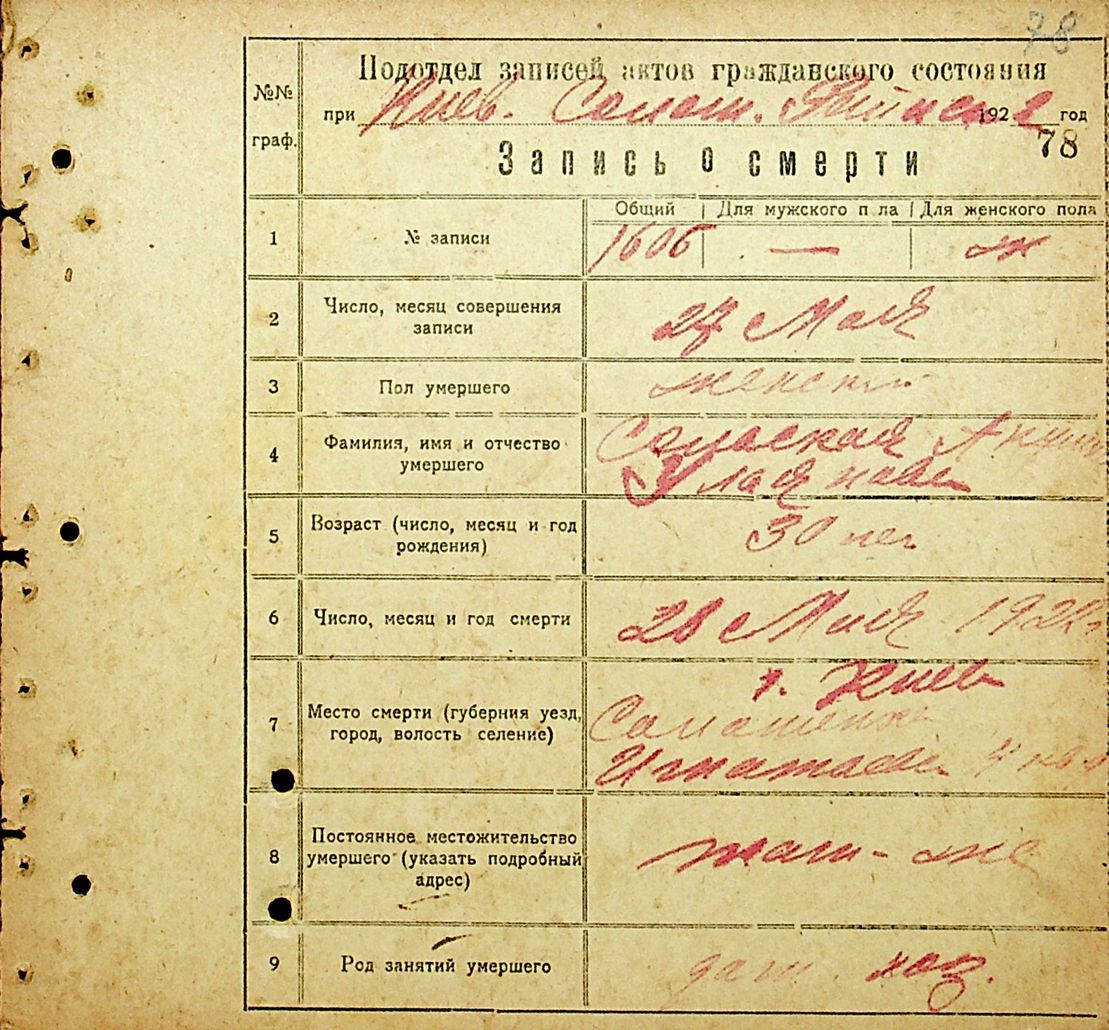 78
№№ граф.
Подотдел записей актов гражданского состояния
при Киев. Солом. 1922 год
78
Запись о смерти
Общий | Для мужского п ла | Для женского пола
1 № записи 1606 — ж
2 Число, месяц совершения
записи 27 Мая
3 Пол умершего женский
4 Фамилия, имя и отчество
умершего
5 Возраст (число, месяц и год
рождения) 30 лет
6 Число, месяц и год смерти Мая 1922 г
7 Место смерти (губерния уезд,
город, волость селение)
г. Киев
8 Постоянное местожительство
умершего (указать подробный
адрес)
там-же
9 Род занятий умершего дом. хоз.